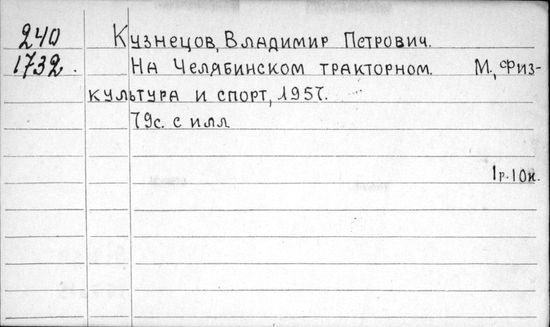 240 Кузнецов, Владимир Петрович.
1732. На Челябинском тракторном. М., Физ-
культура и спорт, 1957.
79с. с илл
1р.10к.